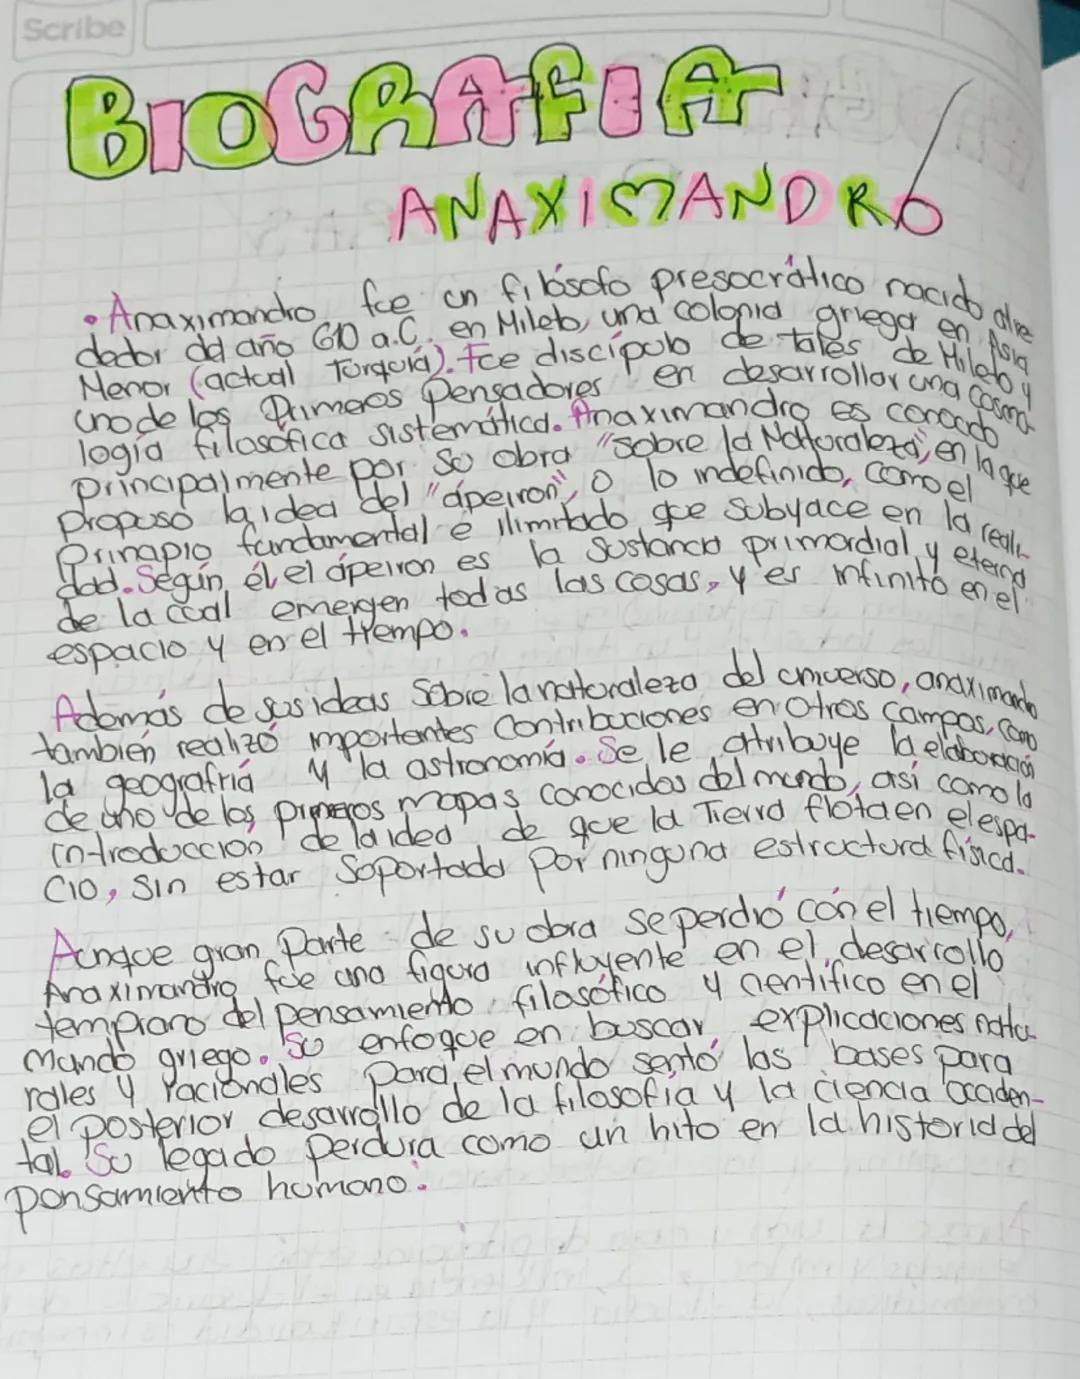 Scribe
BIOGRAFIA
ANAXIMANDRO
• Anaximandro fue un filósofo presocrático nacido alre
dedor del año 610 a.C. en Mileto, una colonia griega en Asia
Menor (actual Turquía). Fue discípulo de tales de Mileto y
uno de los Primeros Pensadores en desarrollar una cosmo-
logía filosófica sistemática. Anaximandro es conocido
principalmente por su obra "Sobre la Naturaleza", en la que
propuso la idea del "ápeiron", o lo indefinido, como el
Prinapio fundamental e ilimitado que subyace en la reali-
dad. Según él, el ápeiron es la sustancia primordial y eterna
de la cual emergen todas las cosas, y es infinito en el
espacio y en el tiempo.
Además de sus ideas Sobre la naturaleza del universo, anaximando
también realizó importantes Contribuciones en Otros campos, como
la geografría y la astronomía. Se le atribuye la elaboración
de uno de los primeros mapas conocidos del mundo, así como la
introducción de la idea de que la Tierra flota en el espa-
cio, sin estar Soportada por ninguna estructura física.
Aunque gran Parte de su obra se perdió con el tiempo,
Anaximandro fue una figura influyente en el desarrollo
temprano del pensamiento filosófico y cientifico en el
mundo griego. Su enfoque en buscar explicaciones natu-
rales y racionales para el mundo sentó las bases para
el posterior desarrollo de la filosofía y la ciencia occiden-
tal. Su legado perdura como un hito en la historia del
pensamiento humano.